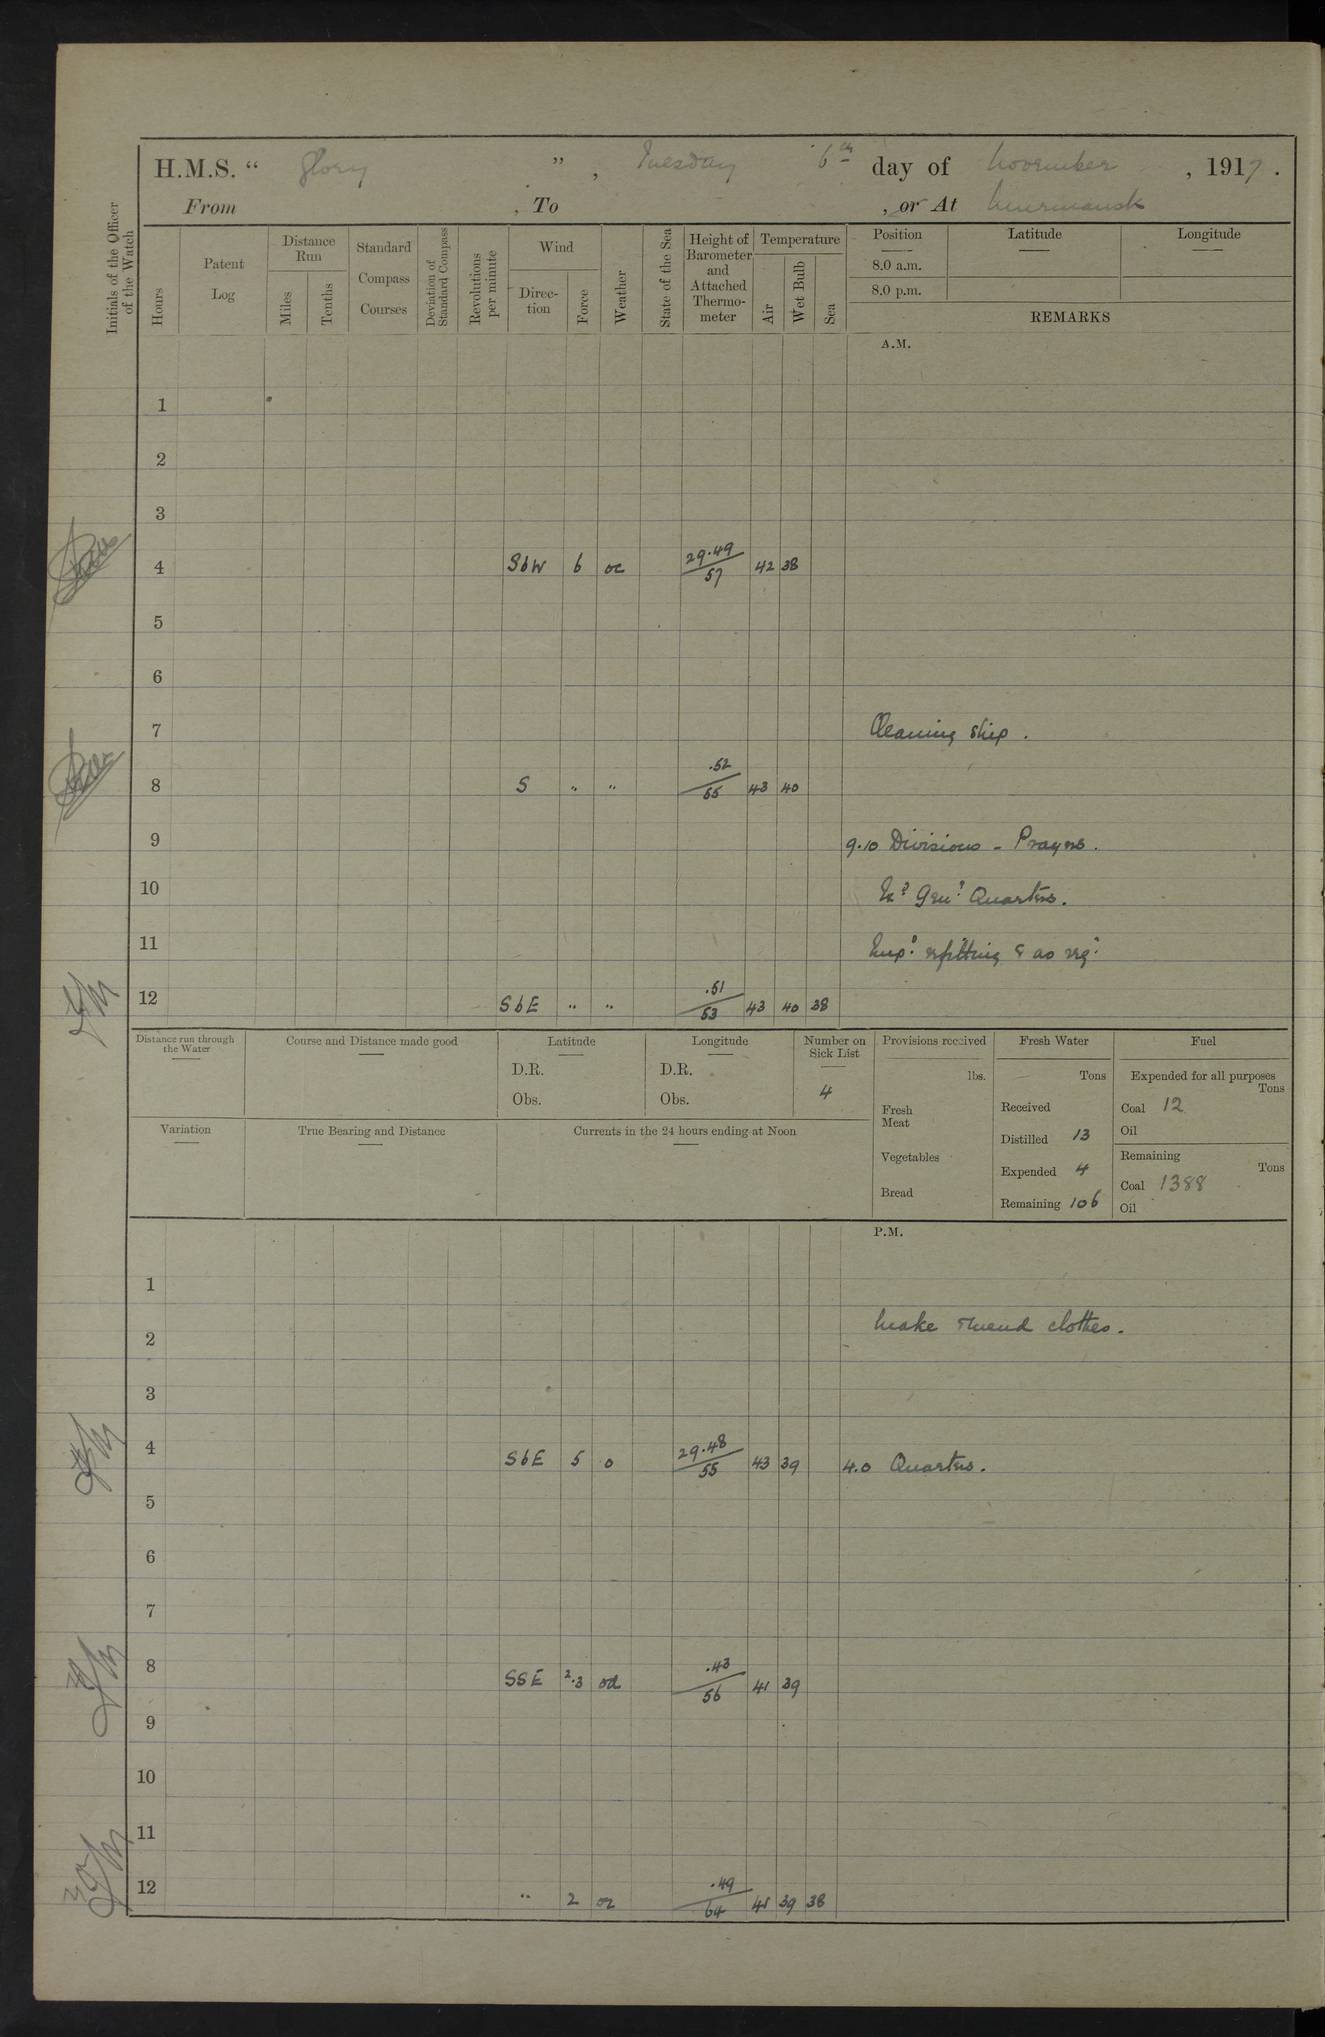 H.M.S. “ Glory ”, Tuesday 6th day of November, 1917.
From , To , or At Murmansk
Initials of the Officer of the Watch
Hours
Patent Log
Distance Run
Miles
Tenths
Standard Compass Courses
Deviation of Standard Compass
Revolutions per minute
Wind
Direction
Force
Weather
State of the Sea
Height of Barometer and Attached Thermometer
Temperature
Air
Wet Bulb
Sea
Position
8.0 a.m.
8.0 p.m.
Latitude
Longitude
REMARKS
A.M.
1
2
3
4 SbW 6 oc 29.49/57 42 38
5
6
7 Cleaning ship.
8 S " " .52/55 43 40
9 9.10 Divisions - Prayers.
10 Ex? Gen? Quarters.
11 Emp? refitting & as req?
12 SbE " " .51/53 43 40 38
Distance run through the Water
Course and Distance made good
Latitude
D.R.
Obs.
Longitude
D.R.
Obs.
Number on Sick List
4
Provisions received
lbs.
Fresh Meat
Vegetables
Bread
Fresh Water
Tons
Received
Distilled 13
Expended 4
Remaining 106
Fuel
Expended for all purposes
Tons
Coal 12
Oil
Remaining
Tons
Coal 1388
Oil
Variation
True Bearing and Distance
Currents in the 24 hours ending at Noon
P.M.
1
2 Make & mend clothes.
3
4 SbE 5 o 29.48/55 43 39 4.0 Quarters.
5
6
7
8 SSE 2.3 od .43/56 41 39
9
10
11
12 " 2 oc .49/64 41 39 38